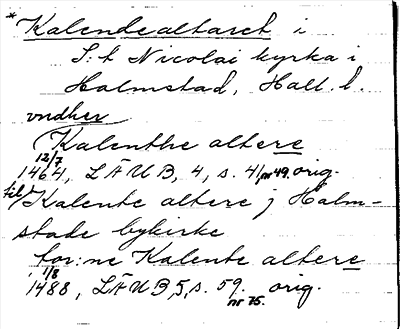 *Kalendealtaret i
S:t Nicolai kyrka i
Halmstad, Hall. l.
vndher
Kalenthe altere
12/7
1464, LÄUB, 4, s. 41, nr 49. orig.
till Kalente altere j Halm-
stade bykirke
for:ne Kalente altere
1/8
1488, LÄUB, 5, s. 59. orig.
nr 75.